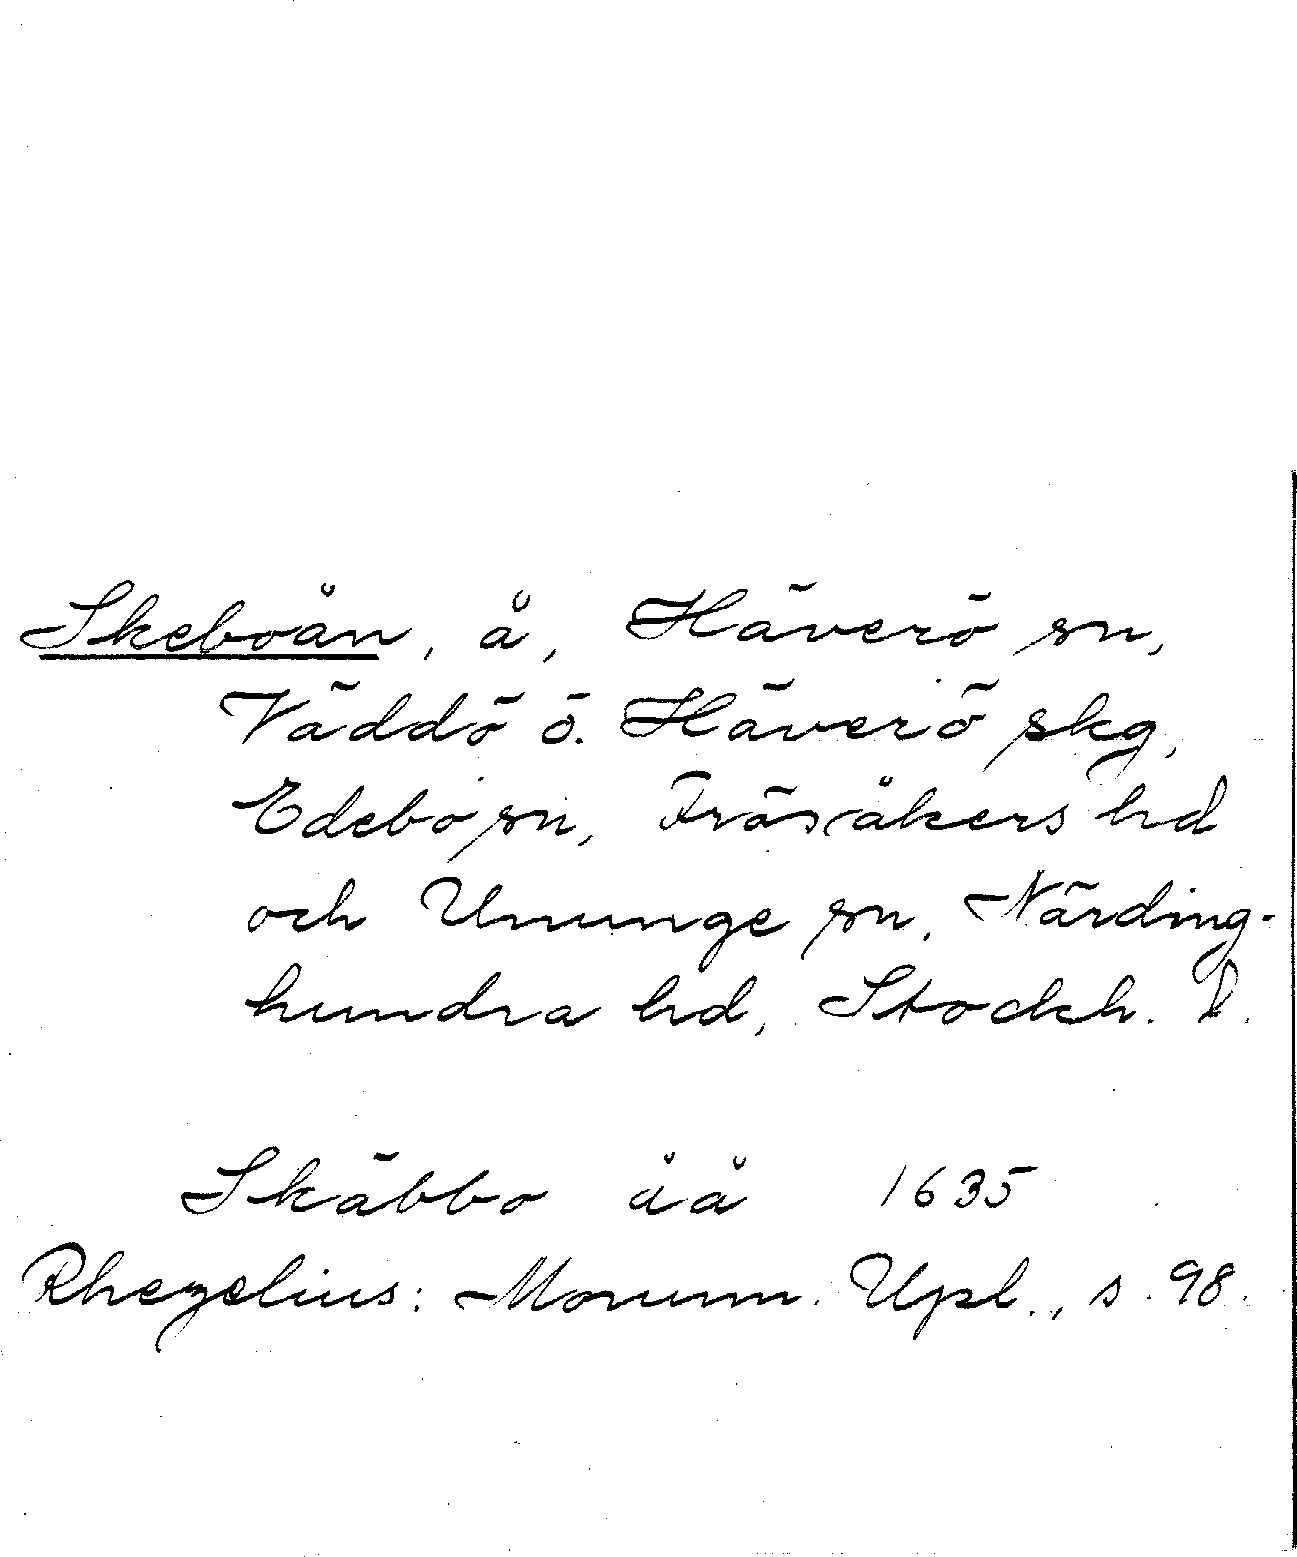 Skeboån, å, Häverö sn,
Väddö ö. Häverö skg,
Edebo sn, Frösåkers hd
och Ununge sn, Närding-
hundra hd, Stockh. l.
Skäbbo åå 1635
Rhezelius: Monum. Upl., s. 98.